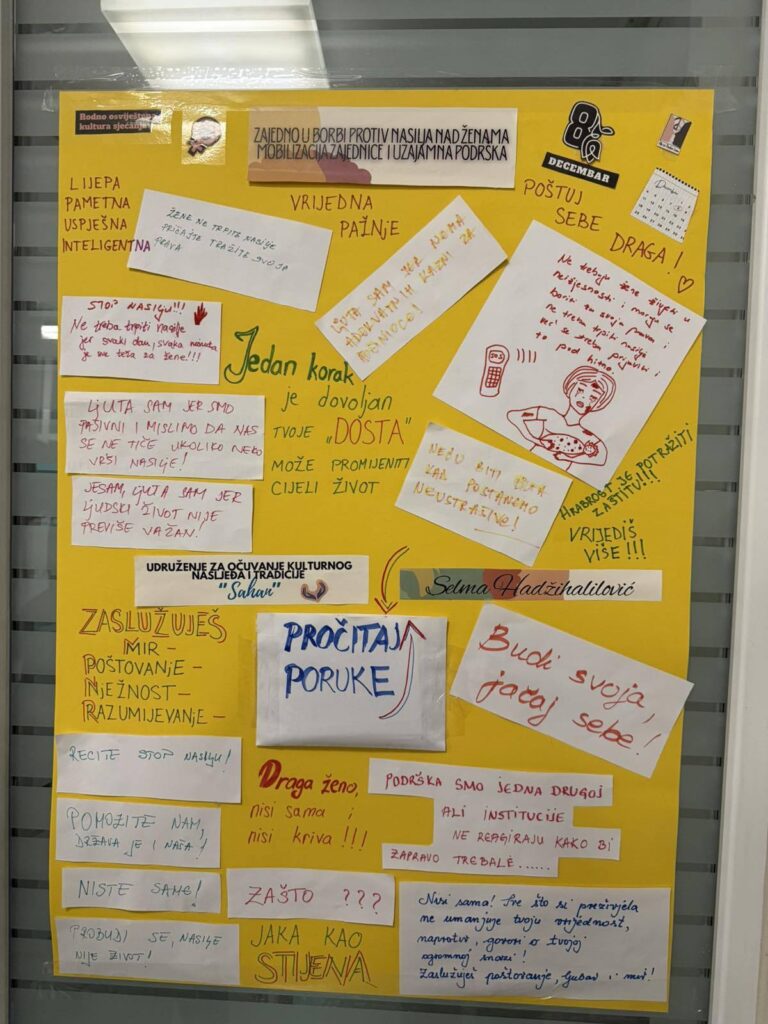 Rodno osviještena
kultura sjećanja
ZAJEDNO U BORBI PROTIV NASILJA NAD ŽENAMA
MOBILIZACIJA ZAJEDNICE I UZAJAMNA PODRŠKA
8
DECEMBAR
LIJEPA
PAMETNA
USPJEŠNA
INTELIGENTNA
ŽENE NE TRPITE NASILJE
PRIČAJTE TRAŽITE SVOJA
PRAVA
VRIJEDNA
PAŽNJE
POŠTUJ
SEBE
DRAGA!
LJUTA SAM JER NEMA
ADEKVATNIH KAZNI ZA
POČINIOCE!
Ne trebaju žene živjeti u
neizvjesnosti i moraju se
boriti za svoja prava i
ne trebaju trpiti nasilje
već se trebaju prijaviti i
to pod hitno.
SOS
STOP NASILJU!!!
Ne treba trpiti nasilje
jer svaki dan, svaka minuta
je sve teža za žene!!!
Jedan korak
je dovoljan
TVOJE „DOSTA"
MOŽE PROMIJENITI
CIJELI ŽIVOT
LJUTA SAM JER SMO
PASIVNI I MISLIMO DA NAS
SE NE TIČE UKOLIKO NEKO
VRŠI NASILJE!
JESAM, LJUTA SAM JER
LJUDSKI ŽIVOT NIJE
PREVIŠE VAŽAN!
NEĆU BITI LJUTA
KAD POSTANEMO
NEUSTRAŠIVE!
HRABROST JE POTRAŽITI
ZAŠTITU!!!
VRIJEDIŠ
VIŠE!!!
UDRUŽENJE ZA OČUVANJE KULTURNOG
NASLIJEĐA I TRADICIJE
"Sahan"
Selma Hadžihalilović
ZASLUŽUJEŠ
MIR –
POŠTOVANJE –
NJEŽNOST –
RAZUMIJEVANJE –
PROČITAJ
PORUKE
Budi svoja,
jačaj sebe!
RECITE STOP NASILJU!
POMOZITE NAM,
DRŽAVA JE I NAŠA!
NISTE SAME!
PROBUDI SE, NASILJE
NIJE ŽIVOT!
Draga ženo,
nisi sama i
nisi kriva!!!
ZAŠTO ???
JAKA KAO
STIJENA
PODRŠKA SMO JEDNA DRUGOJ
ALI INSTITUCIJE
NE REAGIRAJU KAKO BI
ZAPRAVO TREBALE......
Nisi sama! Sve što si preživjela
ne umanjuje tvoju vrijednost,
naprotiv, govori o tvojoj
ogromnoj snazi!
Zaslužuješ poštovanje, ljubav i mir!